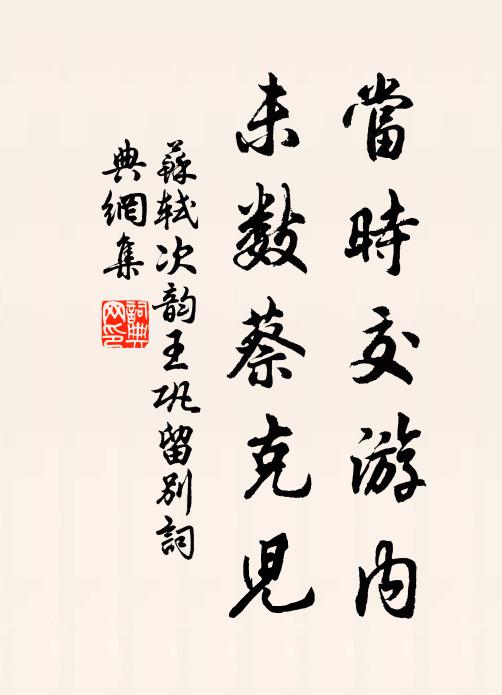 當時交游内
未數蔡克兒
蘇軾次韵王巩留别詞
典網集
詞典
网印